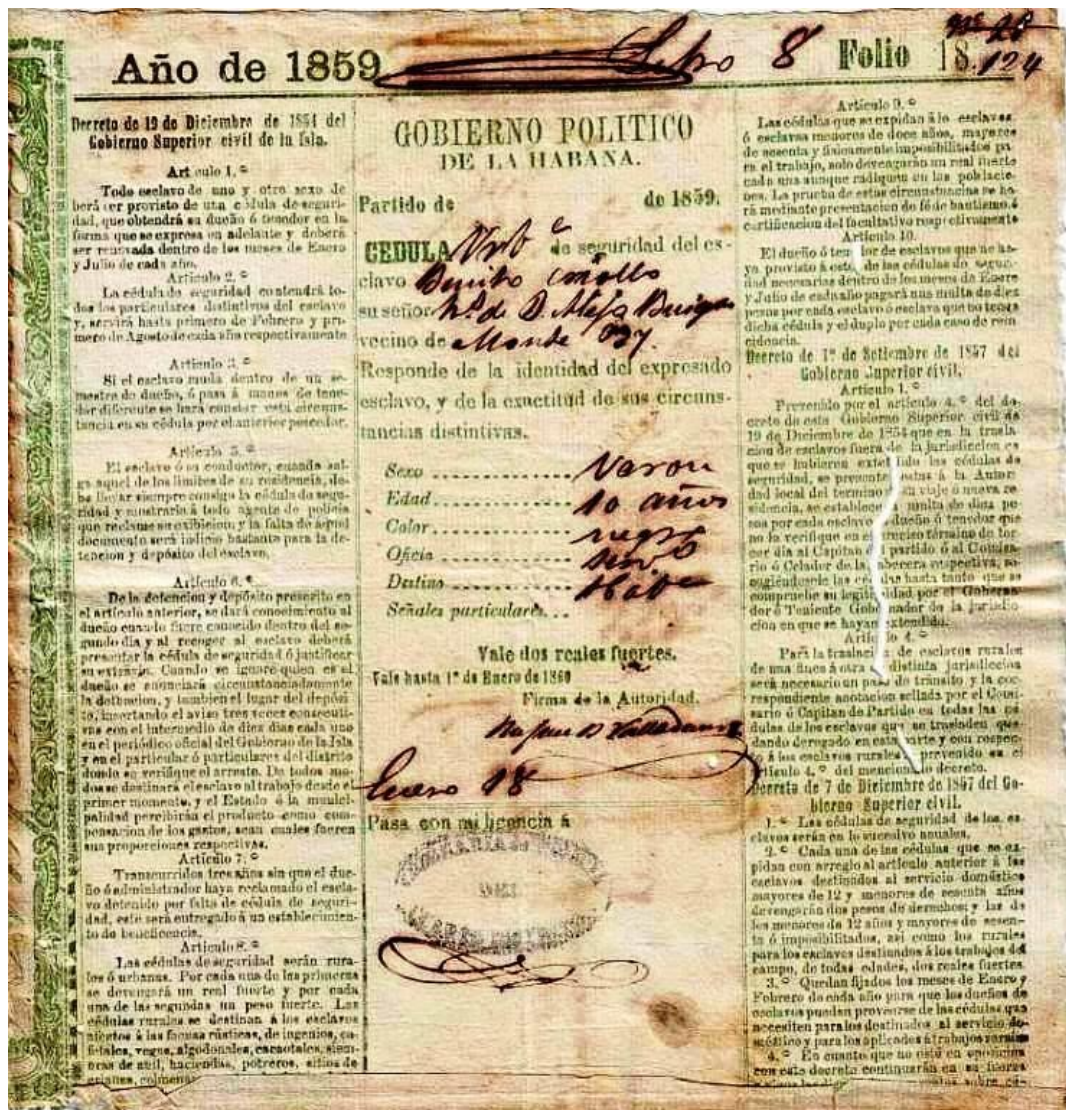 Año de 1859
Folio 18
Decreto de 19 de Diciembre de 1854 del
Gobierno Superior civil de la Isla.
Artículo 1.º
Todo esclavo de uno y otro sexo de
berá ser provisto de una cédula de seguri-
dad, que obtendrá su dueño ó tenedor en la
forma que se expresa en adelante y deberá
ser renovada dentro de los meses de Enero
y Julio de cada año.
Artículo 2.º
La cédula de seguridad contendrá to-
dos los particulares distintivos del esclavo
y, servirá hasta primero de Febrero y pri-
mero de Agosto de cada año respectivamente
Artículo 3.º
Si el esclavo muda dentro de un se-
mestre de dueño, ó pasa á manos de tene-
dor diferente se hará constar esta circuns-
tancia en su cédula por el anterior poseedor.
Artículo 5.º
El esclavo ó su conductor, cuando sal-
ga aquel de los límites de su residencia, de-
be llevar siempre consigo la cédula de segu-
ridad y mostrarla á todo agente de policía
que reclame su exhibicion; y la falta de aquel
documento será indicio bastante para la de-
tencion y depósito del esclavo.
Artículo 6.º
De la detencion y depósito prescrito en
el artículo anterior, se dará conocimiento al
dueño cuando fuere conocido dentro del se-
gundo dia y al recoger al esclavo deberá
presentar la cédula de seguridad ó justificar
su extravío. Cuando se ignore quien es el
dueño se enunciará circunstanciadamente
la detencion, y tambien el lugar del depósi-
to, insertando el aviso tres veces consecuti-
vas con el intermedio de diez dias cada uno
en el periódico oficial del Gobierno de la Isla
y en el particular ó particulares del distrito
donde se verifique el arresto. De todos mo-
dos se destinará el esclavo al trabajo desde el
primer momento, y el Estado ó la munici-
palidad percibirán el producto como com-
pensacion de los gastos, sean cuales fueren
sus proporciones respectivas.
Artículo 7.º
Transcurridos tres años sin que el due-
ño ó administrador haya reclamado el escla-
vo detenido por falta de cédula de seguri-
dad, este será entregado á un establecimien-
to de beneficencia.
Artículo 8.º
Las cédulas de seguridad serán rura-
les ó urbanas. Por cada una de las primeras
se devengará un real fuerte y por cada
una de las segundas un peso fuerte. Las
cédulas rurales se destinan á los esclavos
afectos á las faenas rústicas, de ingenios, ca-
fetales, vegas, algodonales, cacaotales, siem-
bras de añil, haciendas, potreros, sitios de
crianes, colmenas
GOBIERNO POLITICO
DE LA HABANA.
Partido de de 1859.
CEDULA Urb de seguridad del es-
clavo Benito criollo
su señor
vecino de Monte
Responde de la identidad del expresado
esclavo, y de la exactitud de sus circuns-
tancias distintivas.
Sexo Varon
Edad 10 años
Color negro
Oficio
Destino Habe
Señales particulares...
Vale dos reales fuertes.
Vale hasta 1º de Enero de 1860
Firma de la Autoridad.
Enero 18
Pasa con mi licencia á
Artículo 9.º
Las cédulas que se expidan á lo esclavos
ó esclavas menores de doce años, mayores
de sesenta y físicamente imposibilitados pa-
ra el trabajo, solo devengarán un real fuerte
cada una aunque radiquen en las poblacio-
nes. La prueba de estas circunstancias se ha-
rá mediante presentacion de fé de bautismo ó
certificacion del facultativo respectivamente
Artículo 10.
El dueño ó tenedor de esclavos que no ha-
ya provisto á estos de las cédulas de seguri-
dad necesarias dentro de los meses de Enero
y Julio de cada año pagará una multa de diez
pesos por cada esclavo ó esclava que no tenga
dicha cédula y el duplo por cada caso de rein
cidencia.
Decreto de 1º de Setiembre de 1857 del
Gobierno Superior civil.
Artículo 1.º
Prevenido por el artículo 4.º del de-
creto de este Gobierno Superior civil de
19 de Diciembre de 1854 que en la trasla
cion de esclavos fuera de la jurisdiccion en
que se hubieren extendido las cédulas de
seguridad, se presenten estas á la Autori
dad local del termino en viaje ó nueva re
sidencia, se establece la multa de diez pe-
sos por cada esclavo al dueño ó tenedor que
no la verifique en el preciso término de ter
cer dia al Capitan del partido ó al Comisa-
rio ó Celador de la cabecera respectiva, re-
cogiéndosele las cédulas hasta tanto que se
compruebe su legitimidad por el Goberna-
dor ó Teniente Gobernador de la jurisdic-
cion en que se hayan extendido.
Artículo 4.º
Para la traslacion de esclavos rurales
de una finca á otra de distinta jurisdiccion
será necesario un pase de tránsito y la cor-
respondiente anotacion sellada por el Comi-
sario ó Capitan de Partido en todas las cé
dulas de los esclavos que se trasladen que-
dando derogado en esta parte y con respec-
to á los esclavos rurales lo prevenido en el
artículo 4.º del mencionado decreto.
Decreto de 7 de Diciembre de 1857 del Go-
bierno Superior civil.
1.º Las cédulas de seguridad de los es
clavos serán en lo sucesivo anuales.
2.º Cada una de las cédulas que se ex-
pidan con arreglo al artículo anterior á los
esclavos destinados al servicio doméstico
mayores de 12 y menores de sesenta años
devengarán dos pesos de derechos; y las de
los menores de 12 años y mayores de sesen-
ta ó imposibilitados, asi como los rurales
para los esclavos destinados á los trabajos del
campo, de todas edades, dos reales fuertes.
3.º Quedan fijados los meses de Enero y
Febrero de cada año para que los dueños de
esclavos puedan proveerse de las cédulas que
necesiten para los destinados al servicio do-
méstico y para los aplicados á trabajos rurales
4.º En cuanto que no esté en oposicion
con este decreto continuarán en su fuerza